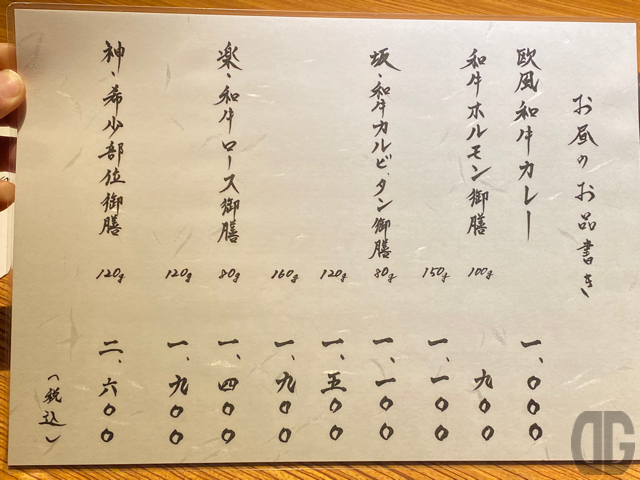 お昼のお品書き
欧風和牛カレー 一、〇〇〇
和牛ホルモン御膳 100g 九〇〇
150g 一、一〇〇
坂、和牛カルビ、タン御膳 80g 一、一〇〇
120g 一、五〇〇
160g 一、九〇〇
楽、和牛ロース御膳 80g 一、四〇〇
120g 一、九〇〇
神、希少部位御膳 120g 二、六〇〇
（税込）
DG